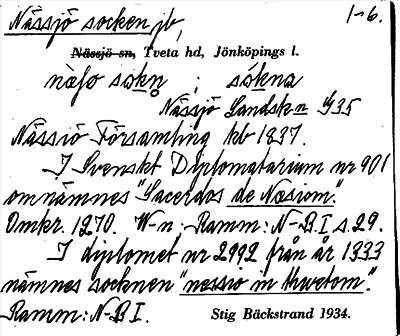 Nässjö socken jb, 1-6.
Nässjö sn, Tveta hd, Jönköpings l.
näſo sokn ; sókna
Nässjö Landsk-n G35
Nässiö Församling kb 1837.
I Svenskt Diplomatarium nr 901
omnämnes "Sacerdos de Næsiom".
Omkr. 1270. W-n: Ramm: N-B.I s.29.
I diplomet nr 2992 från år 1333
nämnes socknen "nessio in thwetom".
Ramm: N-B I. Stig Bäckstrand 1934.